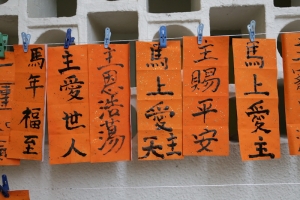 馬年福至
主愛世人
主恩浩蕩
馬上愛主
主賜平安
馬上愛主